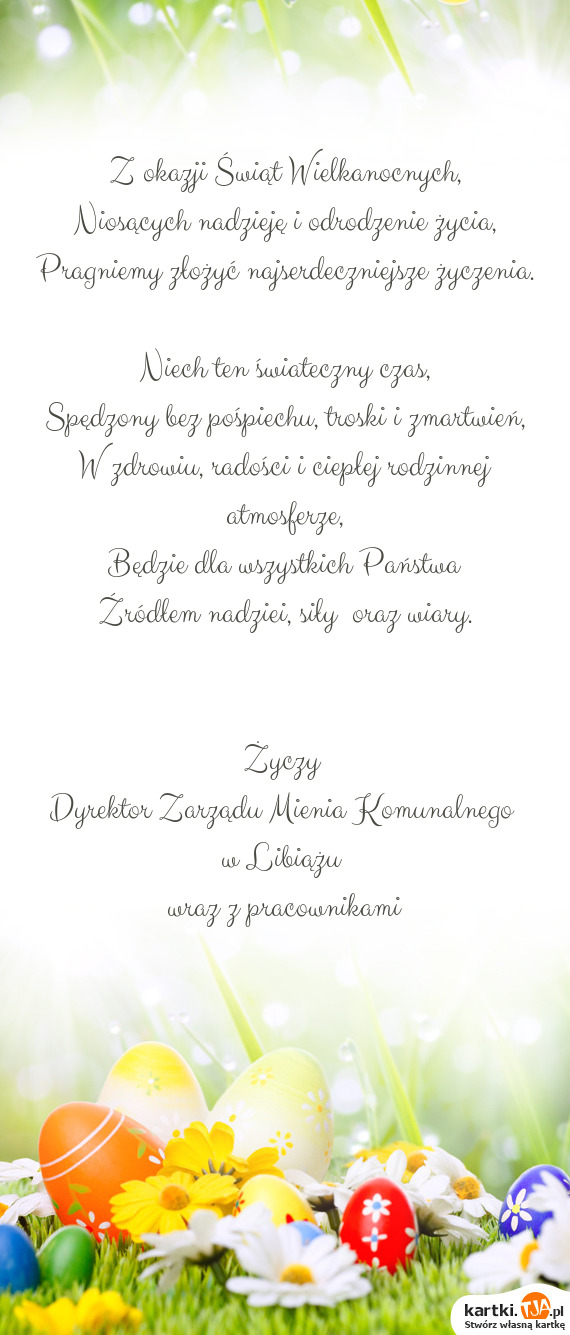 Z okazji Świąt Wielkanocnych,
Niosących nadzieję i odrodzenie życia,
Pragniemy złożyć najserdeczniejsze życzenia.
Niech ten świateczny czas,
Spędzony bez pośpiechu, troski i zmartwień,
W zdrowiu, radości i ciepłej rodzinnej
atmosferze,
Będzie dla wszystkich Państwa
Źródłem nadziei, siły oraz wiary.
Życzy
Dyrektor Zarządu Mienia Komunalnego
w Libiążu
wraz z pracownikami
kartki.TJA.pl
Stwórz własną kartkę